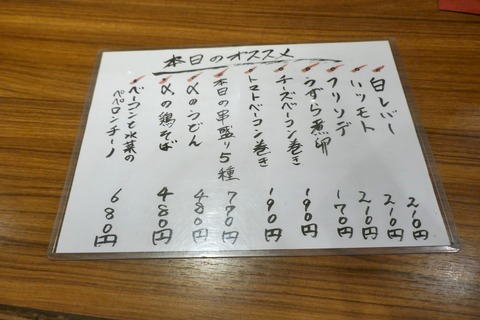 本日のオススメ
白レバー 210円
ハツモト 210円
フリソデ 210円
うずら煮卵 170円
チーズベーコン巻き 190円
トマトベーコン巻き 190円
本日の串盛り5種 790円
〆のうどん 480円
〆の鶏そば 480円
ベーコンと水菜の
ペペロンチーノ 680円